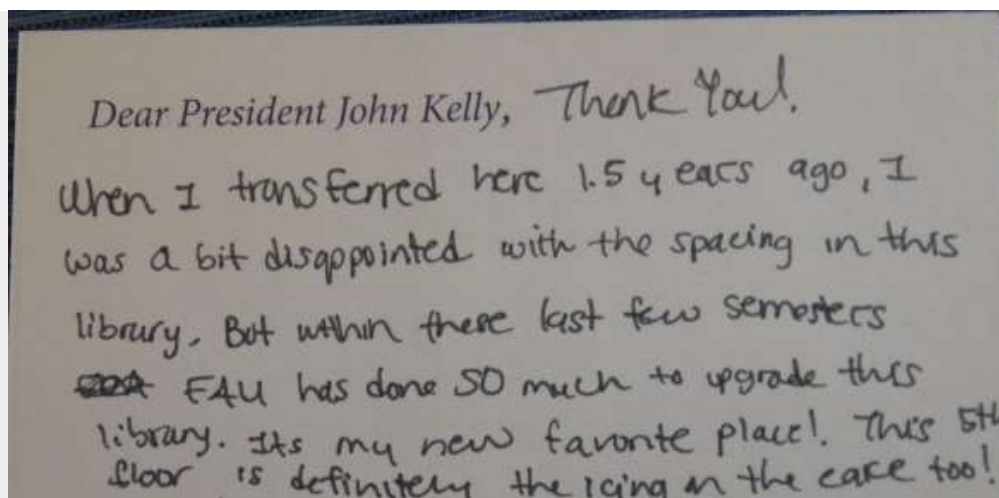 Dear President John Kelly, Thank You!
When I transferred here 1.5 years ago, I
was a bit disappointed with the spacing in this
library. But within these last few semesters
FAU has done SO much to upgrade this
library. Its my new favorite place!. This 5th
floor is definitely the icing on the cake too!